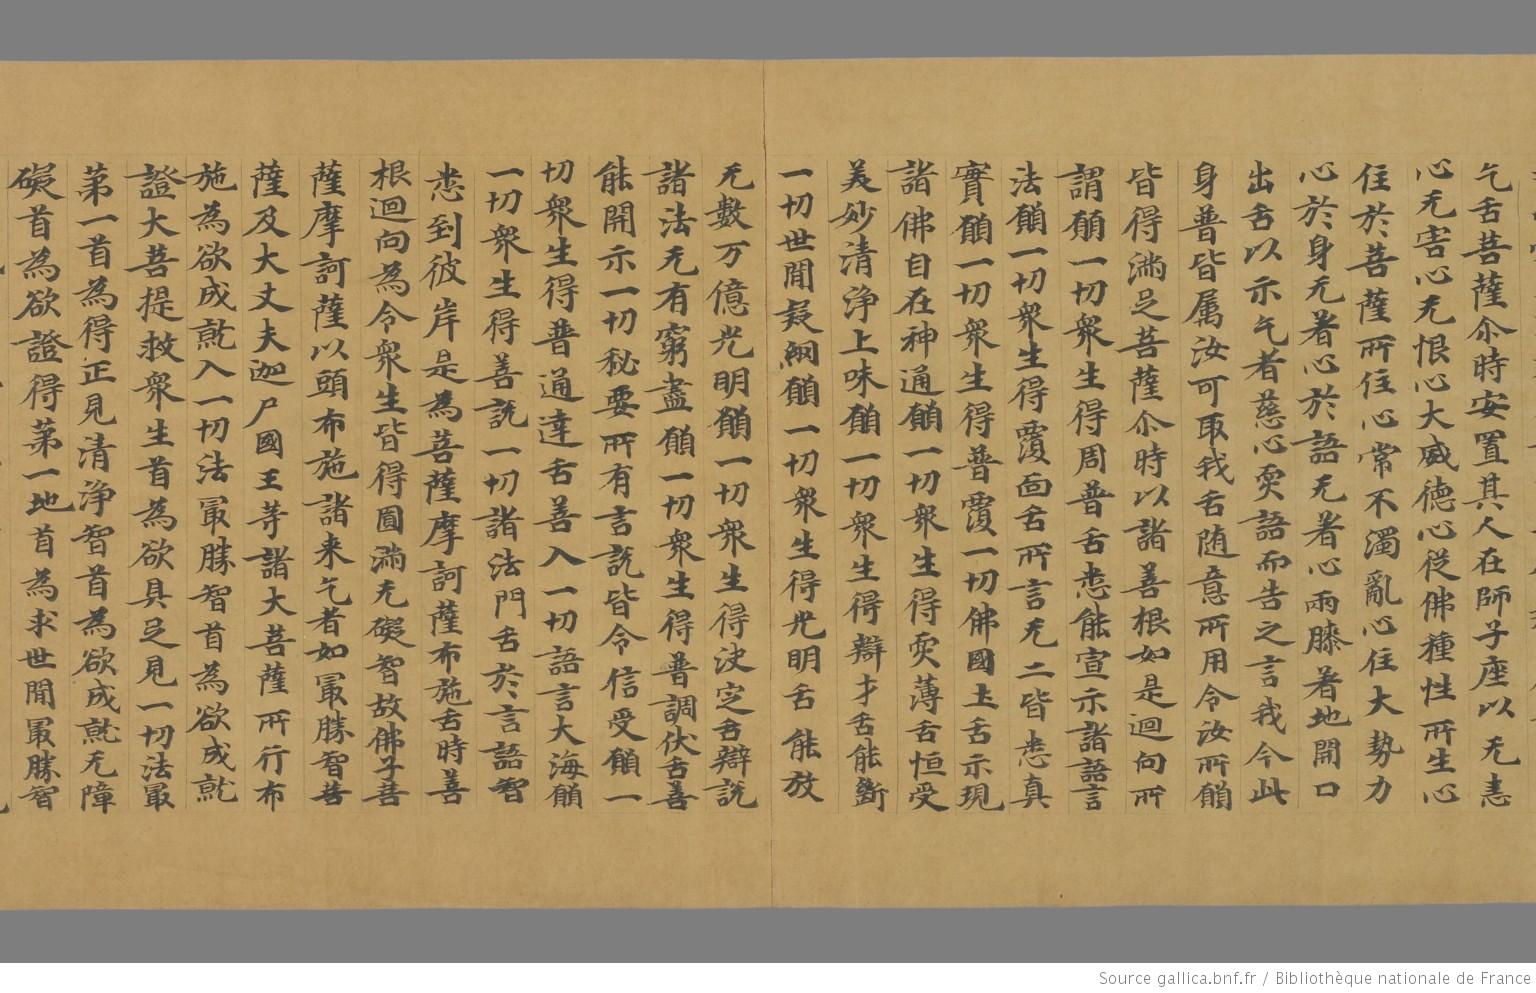 乞舌菩薩尒時安置其人在師子座以无恚
心无害心无恨心大威德心從佛種性所生心
住於菩薩所住心常不濁亂心住大勢力
心於身无著心於語无著心兩膝著地開口
出舌以示乞者慈心耎語而告之言我今此
身普皆属汝可取我舌随意所用令汝所願
皆得滿足菩薩尒時以諸善根如是迴向所
謂願一切衆生得周普舌悉能宣示諸語言
法願一切衆生得覆面舌所言无二皆悉真
實願一切衆生得普覆一切佛國土舌示現
諸佛自在神通願一切衆生得耎薄舌恒受
美妙清浄上味願一切衆生得辯才舌能斷
一切世間疑網願一切衆生得光明舌能放
无數万億光明願一切衆生得決定舌辯說
諸法无有窮盡願一切衆生得普調伏舌善
能開示一切秘要所有言說皆令信受願一
切衆生得普通達舌善入一切語言大海願
一切衆生得善說一切諸法門舌於言語智
悉到彼岸是為菩薩摩訶薩布施舌時善
根迴向為令衆生皆得圓滿无礙智故佛子菩
薩摩訶薩以頭布施諸来乞者如㝡勝智菩
薩及大丈夫迦尸國王等諸大菩薩所行布
施為欲成就入一切法㝡勝智首為欲成就
證大菩提救衆生首為欲具足見一切法㝡
第一首為得正見清浄智首為欲成就无障
礙首為欲證得第一地首為求世間㝡勝智
Source gallica.bnf.fr / Bibliothèque nationale de France